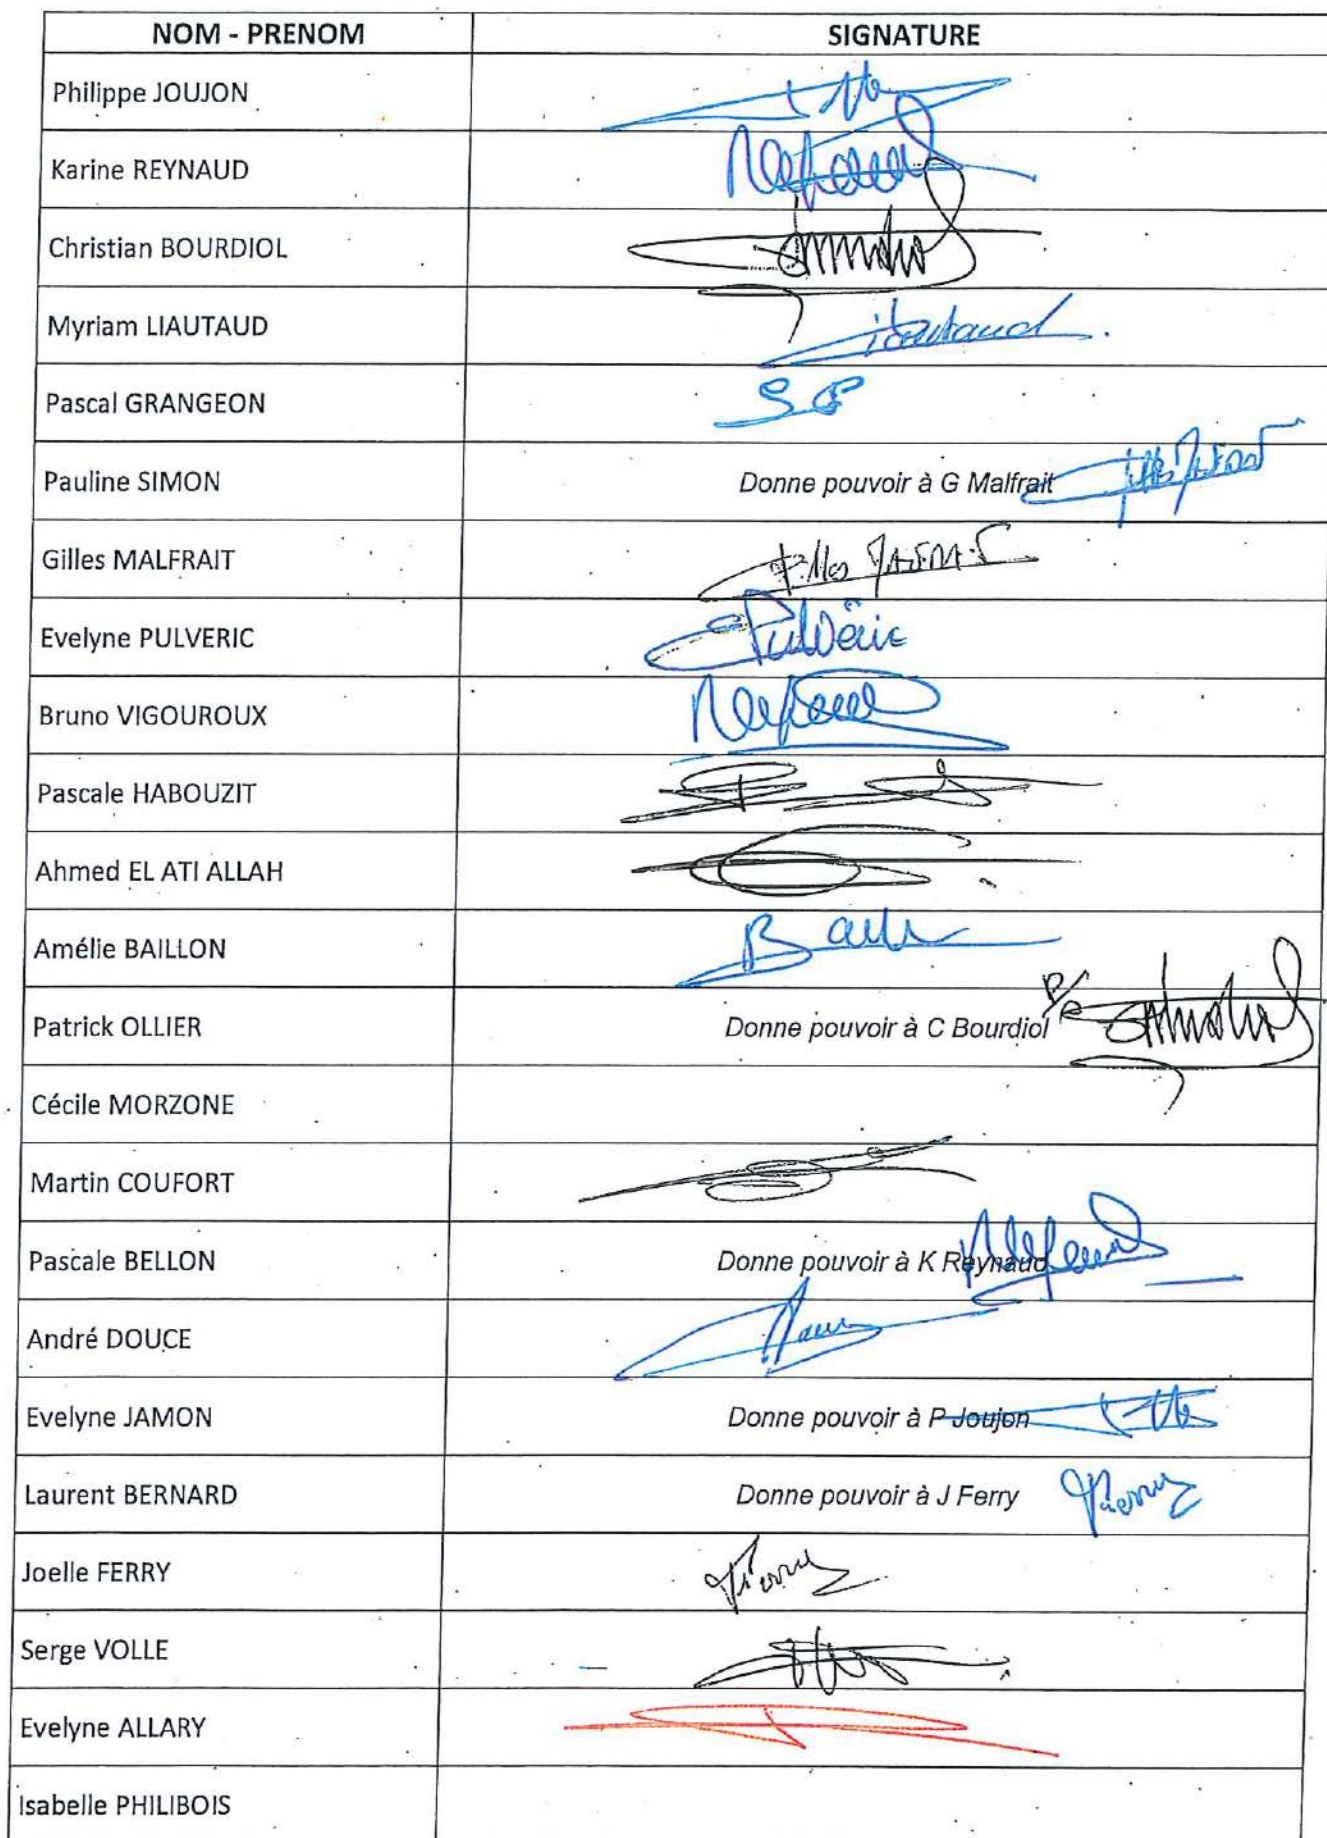 NOM - PRENOM SIGNATURE
Philippe JOUJON
Karine REYNAUD Reynaud
Christian BOURDIOL
Myriam LIAUTAUD Liautaud
Pascal GRANGEON
Pauline SIMON Donne pouvoir à G Malfrait
Gilles MALFRAIT
Evelyne PULVERIC Pulvéric
Bruno VIGOUROUX
Pascale HABOUZIT
Ahmed EL ATI ALLAH
Amélie BAILLON
Patrick OLLIER Donne pouvoir à C Bourdiol P/
Cécile MORZONE
Martin COUFORT
Pascale BELLON Donne pouvoir à K Reynaud
André DOUCE
Evelyne JAMON Donne pouvoir à P Joujon
Laurent BERNARD Donne pouvoir à J Ferry
Joelle FERRY
Serge VOLLE
Evelyne ALLARY
Isabelle PHILIBOIS